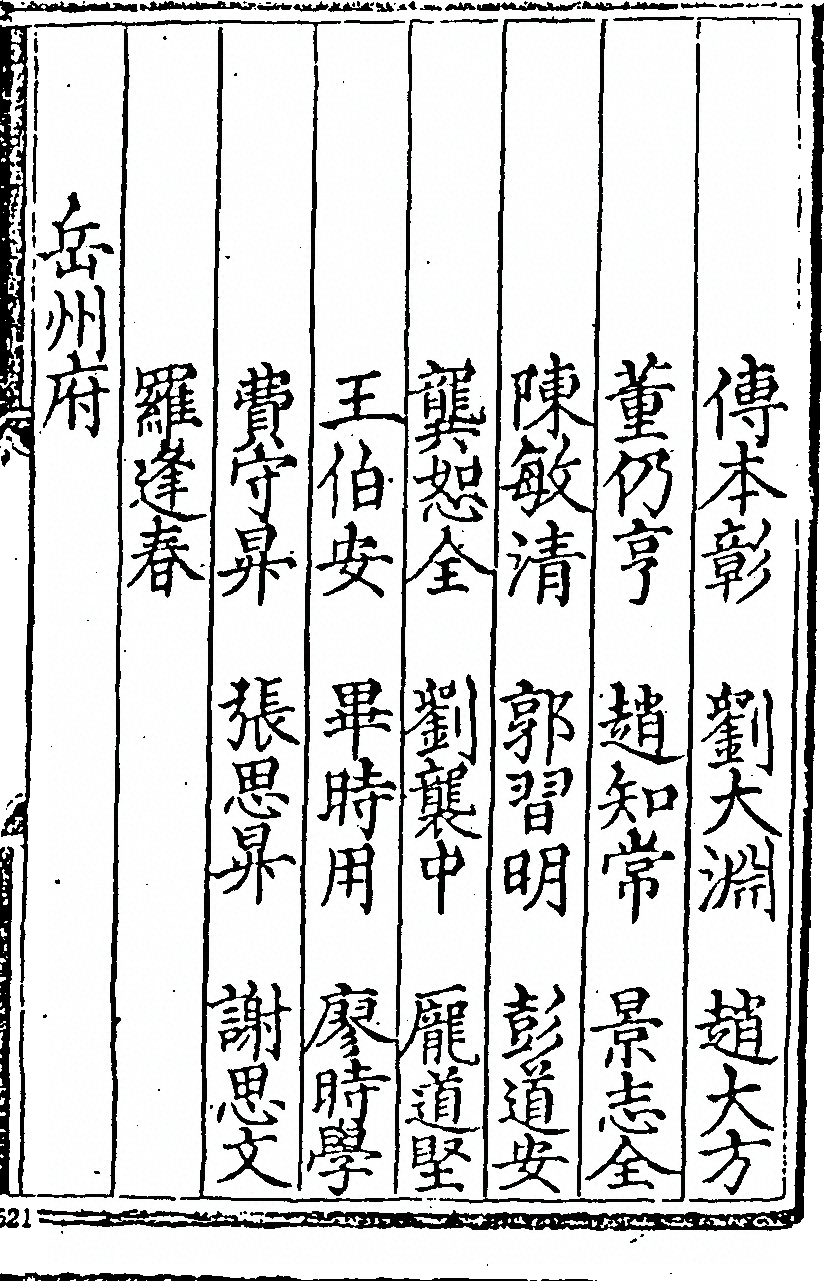 傅本彰　劉大淵　趙大方
董仍亨　趙知常　景志全
陳敏清　郭習明　彭道安
龔恕全　劉襲中　龐道堅
王伯安　畢時用　廖時學
費守昇　張思昇　謝思文
羅逢春
岳州府
621